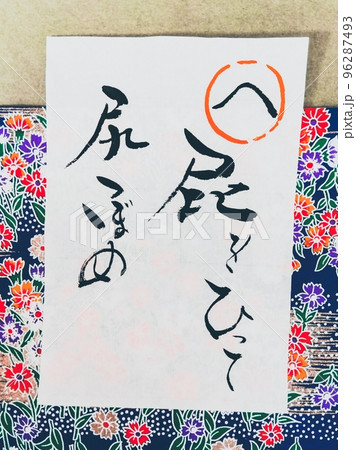 へ
屁をひって
尻つぼめ
PIXTA
pixta.jp - 96287493